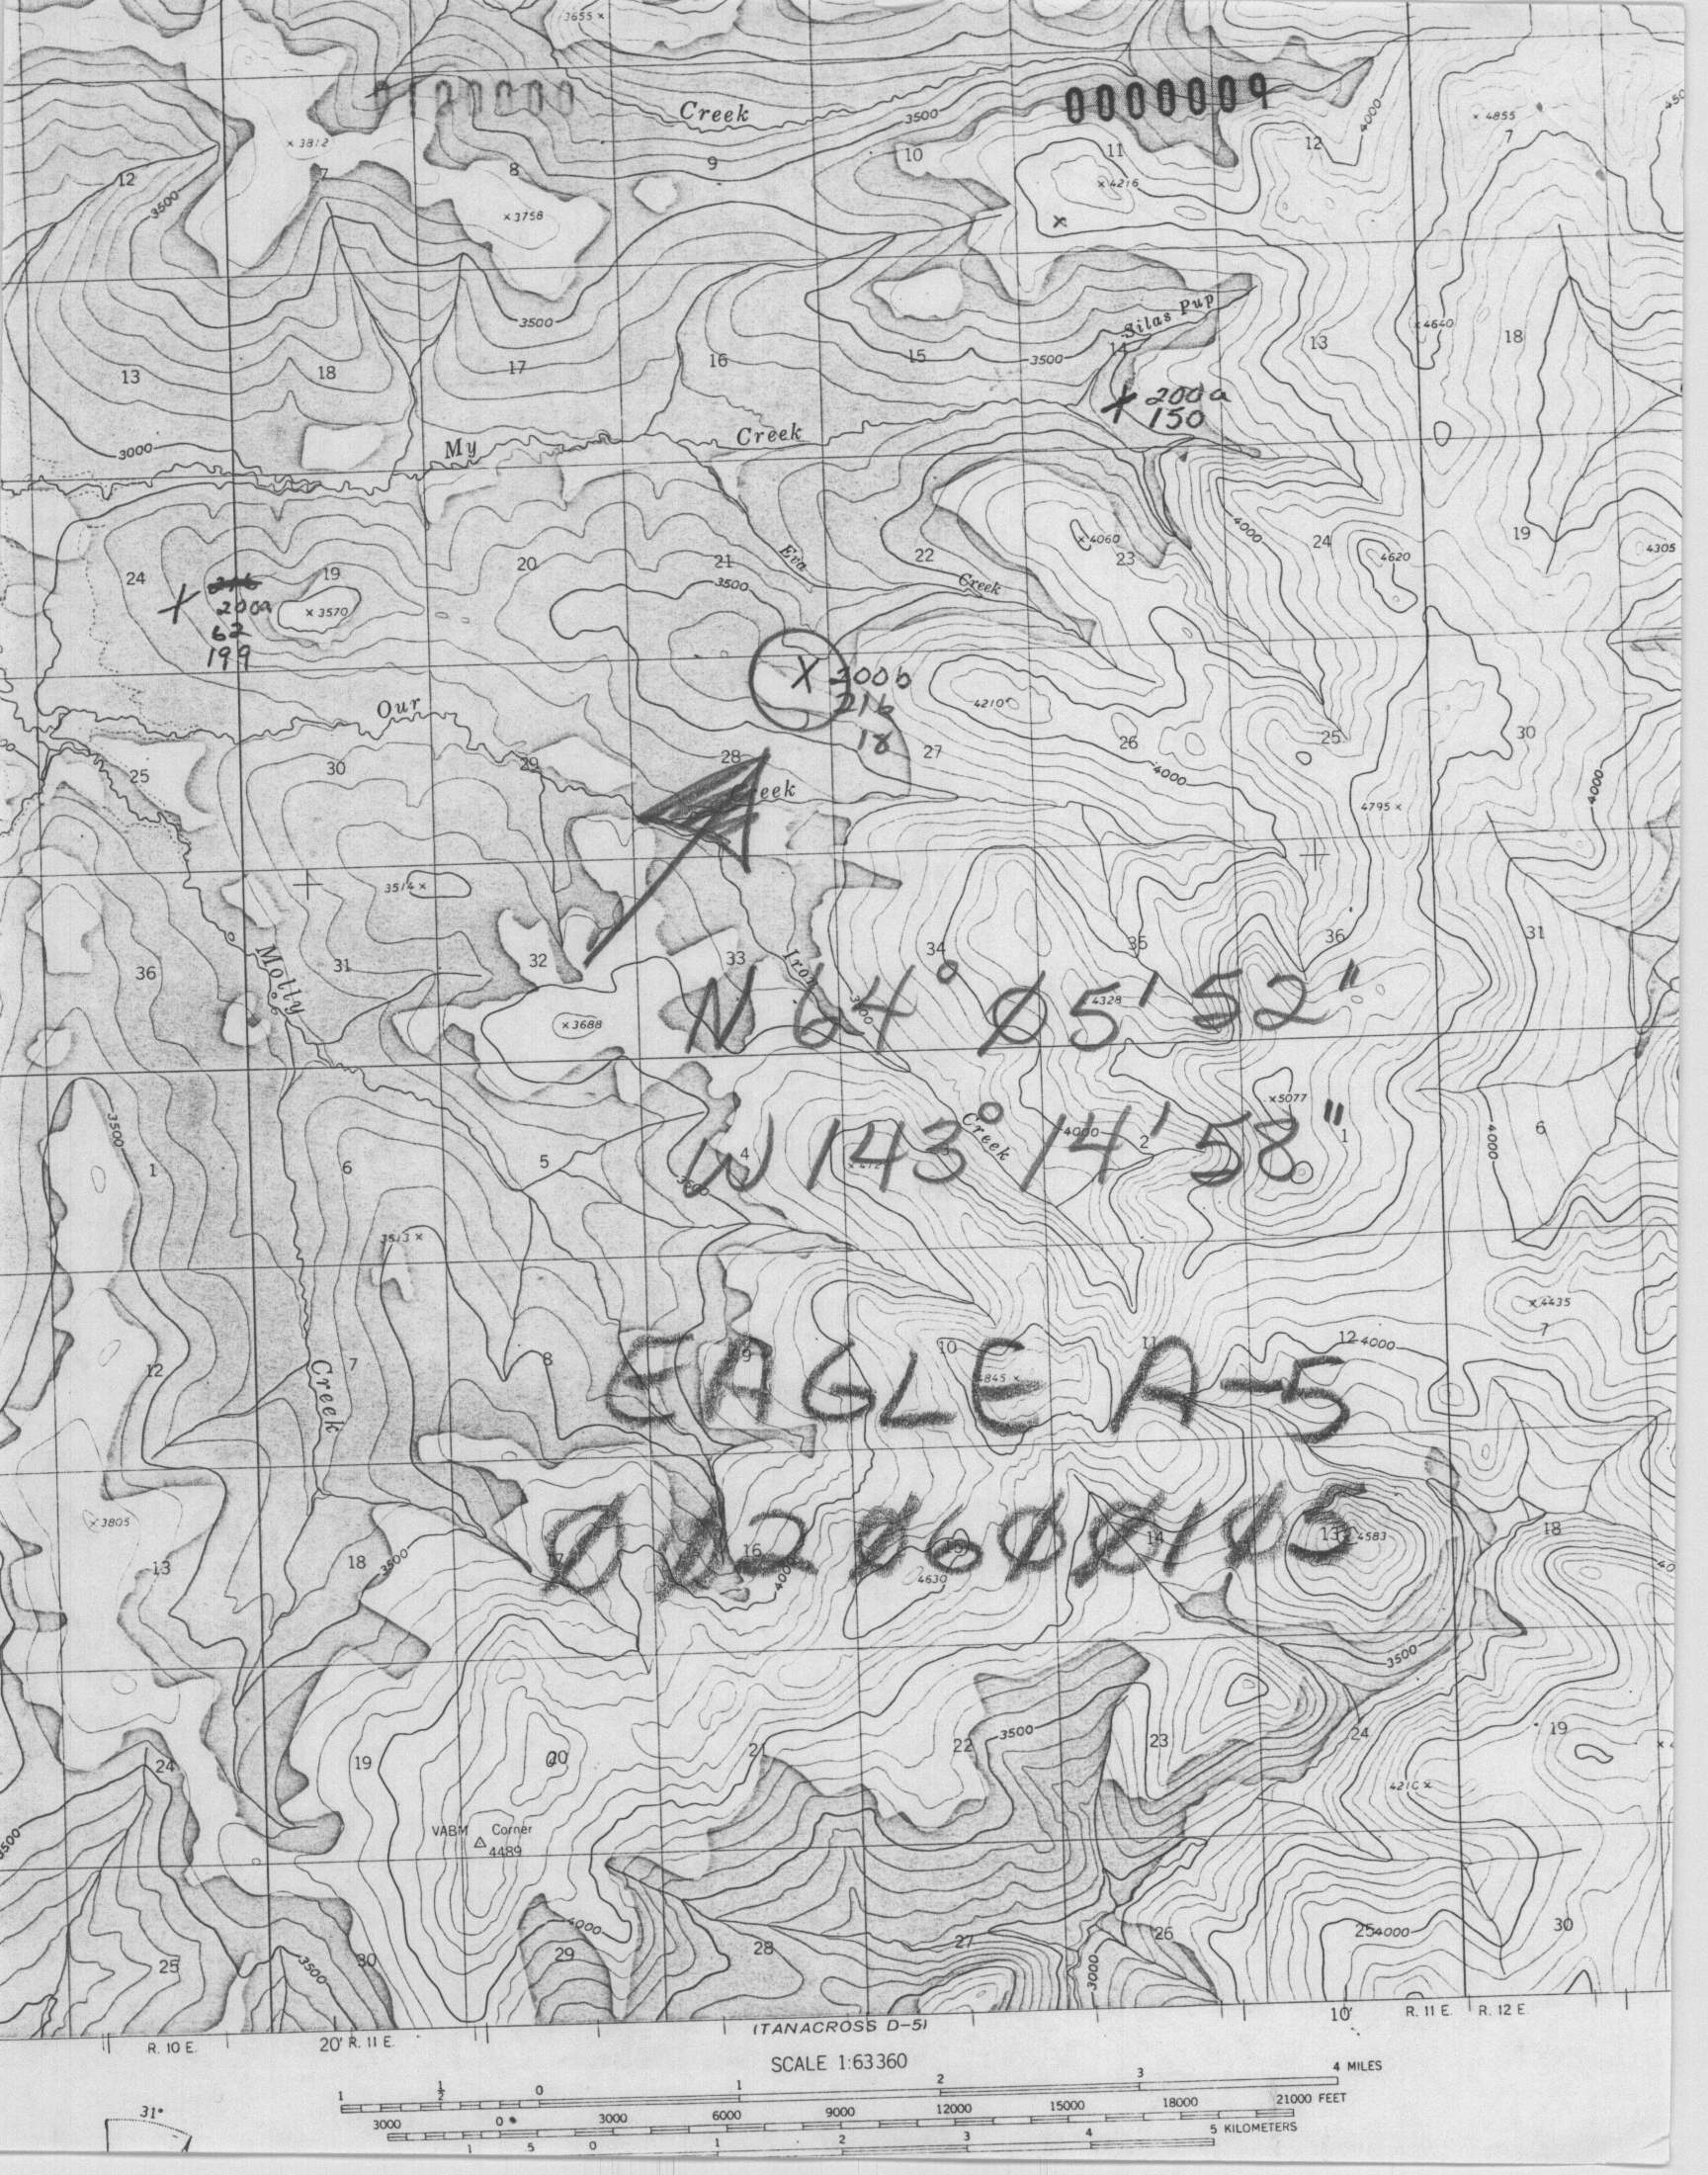 3655
0120000
0000009
Creek
3500
4000
4855
3812
12
7
8
9
10
11
12
7
3500
3758
4216
3500
Silas Pup
4640
13
18
17
16
15
3500
14
13
18
200a
150
3000
My
Creek
4000
4060
24
19
20
21
Eva
22
Creek
23
24
4620
19
4305
3500
200a
3570
62
199
200b
216
18
4210
Our
25
30
29
28
27
26
4000
25
30
Creek
4795
4000
3514
36
31
32
33
34
35
36
31
Molly
Iron
N 64° 05' 52"
4328
3688
3500
5077
Creek
4000
W 143° 14' 58"
4000
1
6
5
4
2
1
6
3513
4435
12
7
8
9
10
11
12
4000
7
Creek
4845
EAGLE A-5
0020600105
3805
13
18
3500
16
4000
4630
14
13
4583
18
3500
24
19
20
21
22
3500
23
24
19
4210
VABM
Corner
4489
3500
25
30
3500
29
4000
28
27
3000
26
25
4000
30
R. 10 E.
20'
R. 11 E.
(TANACROSS D-5)
10'
R. 11 E.
R. 12 E
SCALE 1:63360
1
½
0
1
2
3
4 MILES
3000
0
3000
6000
9000
12000
15000
18000
21000 FEET
1
5
0
1
2
3
4
5 KILOMETERS
31°